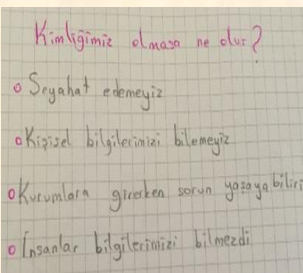 Kimliğimiz olmasa ne olur?
o Seyahat edemeyiz
o Kişisel bilgilerimizi bilemeyiz
o Kurumlara girerken sorun yaşayabiliri
o İnsanlar bilgilerimizi bilmezdi